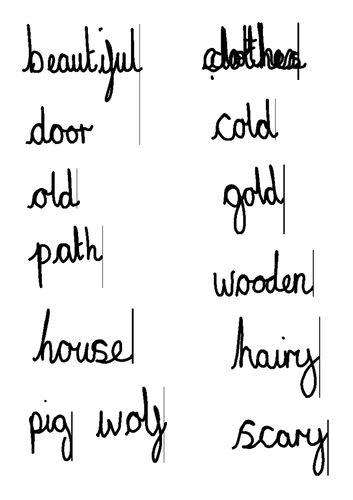 beautiful clothes
door cold
old gold
path wooden
house hairy
pig wolf scary